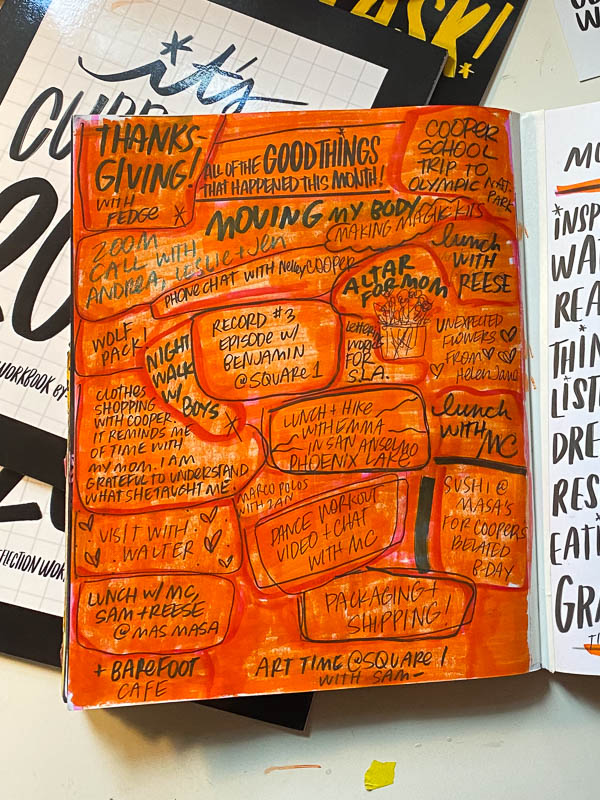 TASK!
it's
WORKBOOK BY
THANKS-
GIVING!
WITH
FEDGE
ALL OF THE GOOD THINGS
THAT HAPPENED THIS MONTH!
COOPER
SCHOOL
TRIP TO
OLYMPIC NAT.
PARK
MOVING MY BODY
MAKING MAGIK KITS
ZOOM
CALL WITH
ANDREA, LESLIE + JEN
PHONE CHAT WITH NELLEY COOPER
ALTAR
FOR MOM
lunch
WITH
REESE
WOLF
PACK!
NIGHT
WALK
W/
BOYS
RECORD #3
EPISODE W/
BENJAMIN
@ SQUARE 1
FOR
S.L.A.
UNEXPECTED
FLOWERS
FROM
Helen Jane
CLOTHES
SHOPPING
WITH COOPER.
IT REMINDS ME
OF TIME WITH
MY MOM. I AM
GRATEFUL TO UNDERSTAND
WHAT SHE TAUGHT ME.
LUNCH + HIKE
WITH EMMA
IN SAN ANSELMO
PHOENIX LAKE
lunch
WITH
MC
MARCO POLOS
WITH ZAN
VISIT WITH
WALTER
DANCE WORKOUT
VIDEO + CHAT
WITH MC
SUSHI @
MASA'S
FOR COOPER'S
BELATED
B-DAY
LUNCH W/ MC,
SAM + REESE
@ MAS MASA
PACKAGING +
SHIPPING!
+ BAREFOOT
CAFE
ART TIME @ SQUARE 1
WITH SAM
MO
INSP
WAT
REA
THIN
LIST
DRE
RES
EATI
GRA